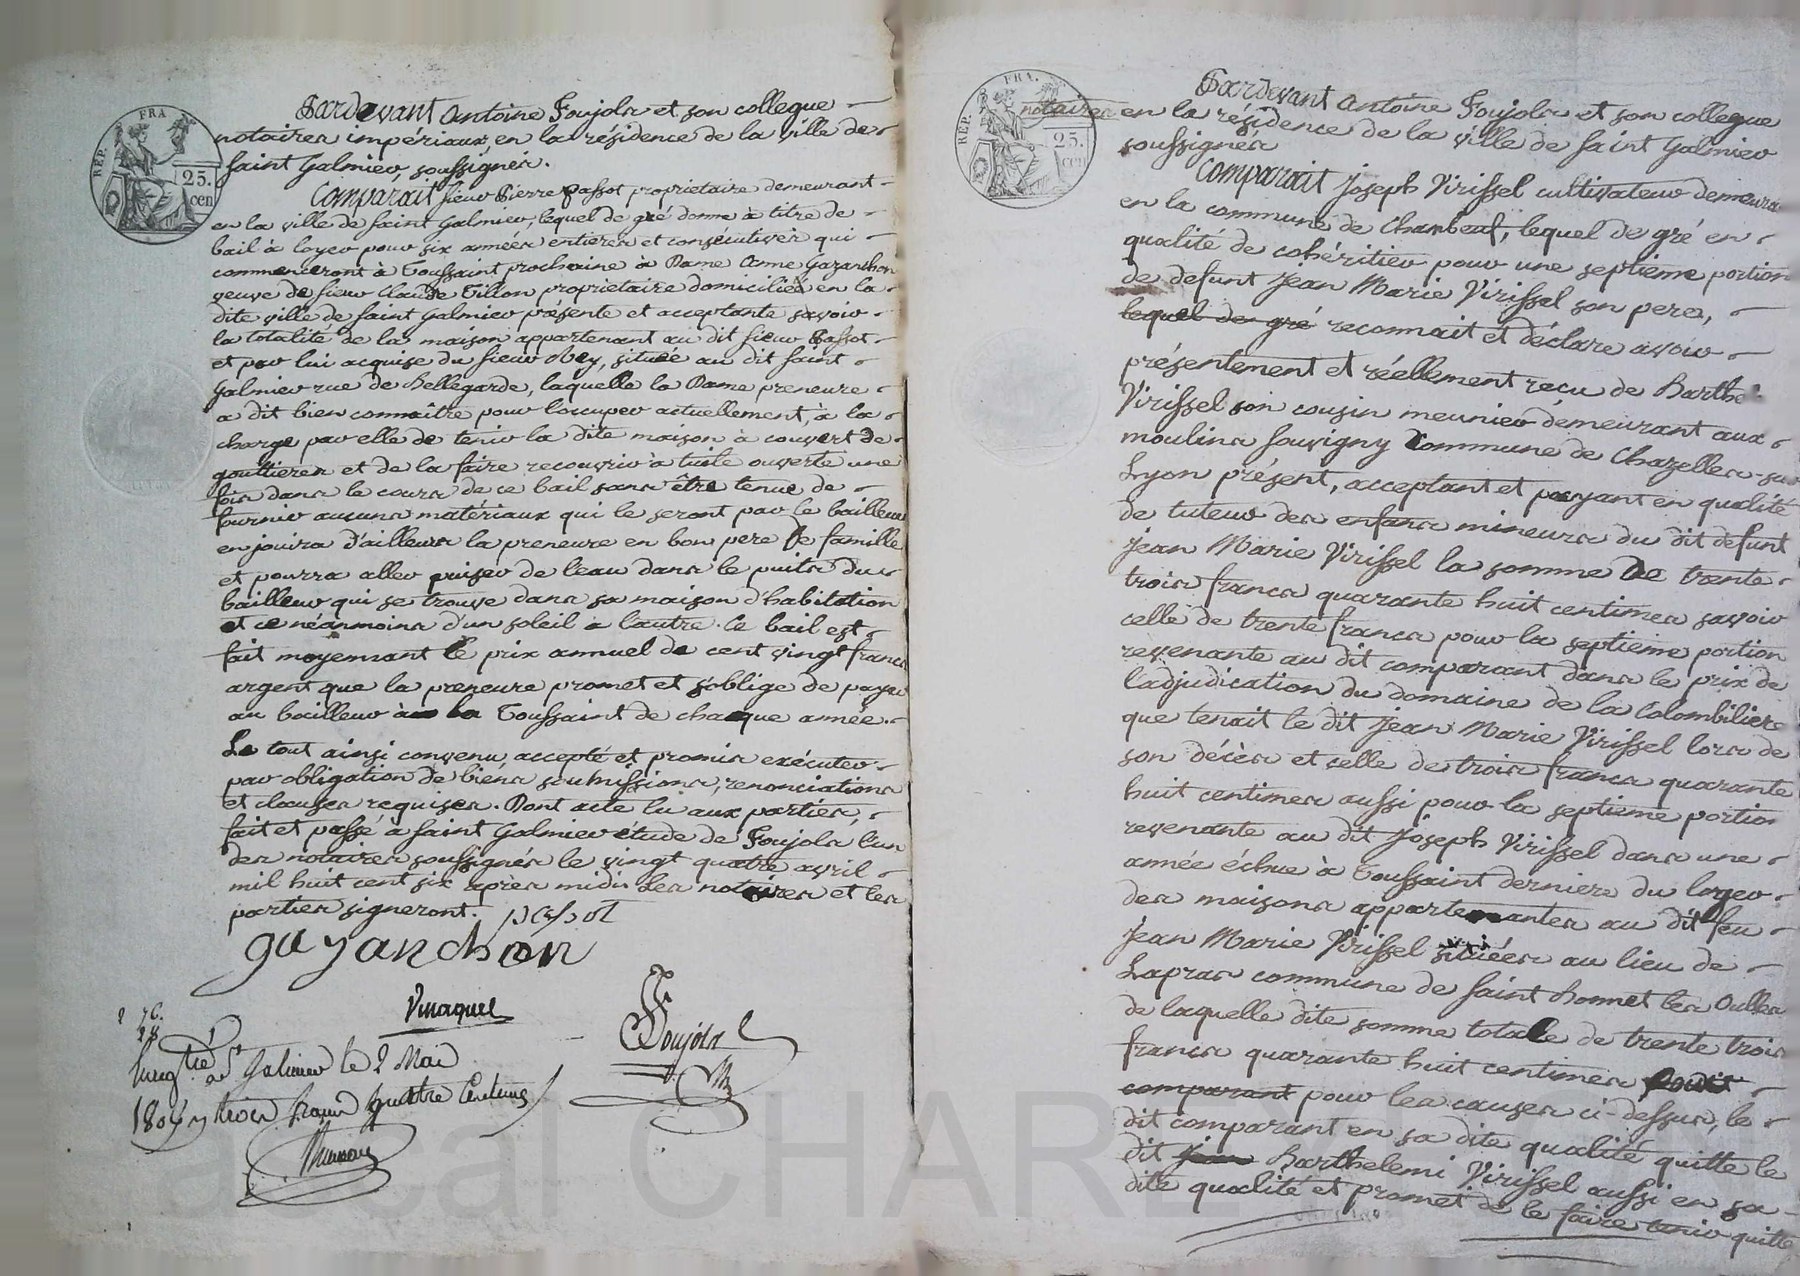 REP. FRA
25.
cen
Pardevant Antoine Foujols et son collegue
notaires impériaux en la résidence de la ville de
Saint Galmier, soussignés.
Comparait Sieur Pierre Passot proprietaire demeurant
en la ville de Saint Galmier, lequel de gré donne à titre de
bail à loyer pour six années entieres et consécutives qui
commenceront à Toussaint prochaine à Dame Anne Gazanchon
veuve de Sieur Claude Tillon proprietaire domiciliée en la
dite ville de Saint Galmier présente et acceptante savoir
la totalité de la maison appartenant au dit Sieur Passot
et par lui acquise du Sieur Rey, située au dit Saint
Galmier rue de Bellegarde, laquelle la Dame preneure
a dit bien connaître pour l'occuper actuellement, à la
charge par elle de tenir la dite maison à couvert de
gouttieres et de la faire recouvrir à tuile ouverte une
fois dans le cours de ce bail sans être tenue de
fournir aucuns matériaux qui le seront par le bailleur
en jouira d'ailleurs la preneure en bon pere de famille
et pourra aller puiser de l'eau dans le puits du
bailleur qui se trouve dans sa maison d'habitation
et ce néanmoins d'un soleil a l'autre. Ce bail est
fait moyennant le prix annuel de cent vingt francs
argent que la preneure promet et s'oblige de payer
au bailleur à la Toussaint de chaque année.
Le tout ainsi convenu, accepté et promis exécuter
par obligation de biens soumissions, renonciations
et clauses requises. Dont acte lu aux parties,
fait et passé à Saint Galmier étude de Foujols l'un
des notaires soussignés le vingt quatre avril
mil huit cent six après midi. Les notaires et les
parties signeront.
passot
gayanchon
Foujols
St Galmier le 2 Mai
1806 trois francs quatre Centimes
REP. FRA.
25.
cen
Pardevant Antoine Foujols et son collegue
notaires en la résidence de la ville de Saint Galmier
soussignés
Comparait Joseph Virissel cultivateur demeurant
en la commune de Chambeuf, lequel de gré en
qualité de cohéritier pour une septieme portion
de defunt Jean Marie Virissel son pere,
lequel de gré reconnait et déclare avoir
présentement et réellement reçu de Barthe
Virissel son cousin meunier démeurant aux
moulins Souvigny Commune de Chazelles-sur
Lyon présent, acceptant et payant en qualité
de tuteur des enfans mineurs du dit defunt
Jean Marie Virissel la somme de trente
trois francs quarante huit centimes savoir
celle de trente francs pour la septieme portion
revenante au dit comparant dans le prix de
l'adjudication du domaine de la Colombiliere
que tenait le dit Jean Marie Virissel lors de
son décès et celle de trois francs quarante
huit centimes aussi pour la septieme portion
revenante au dit Joseph Virissel dans une
année échue à Toussaint derniere du loyer
des maisons appartenantes au dit feu
Jean Marie Virissel situées au lieu de
Lapras commune de Saint Bonnet les Oulles
de laquelle dite somme totale de trente trois
francs quarante huit centimes
comparant pour les causes ci-dessus, le
dit comparant en sa dite qualité quitte le
dit Jean Barthelemi Virissel aussi en sa
dite qualité et promet de le faire tenir quitte